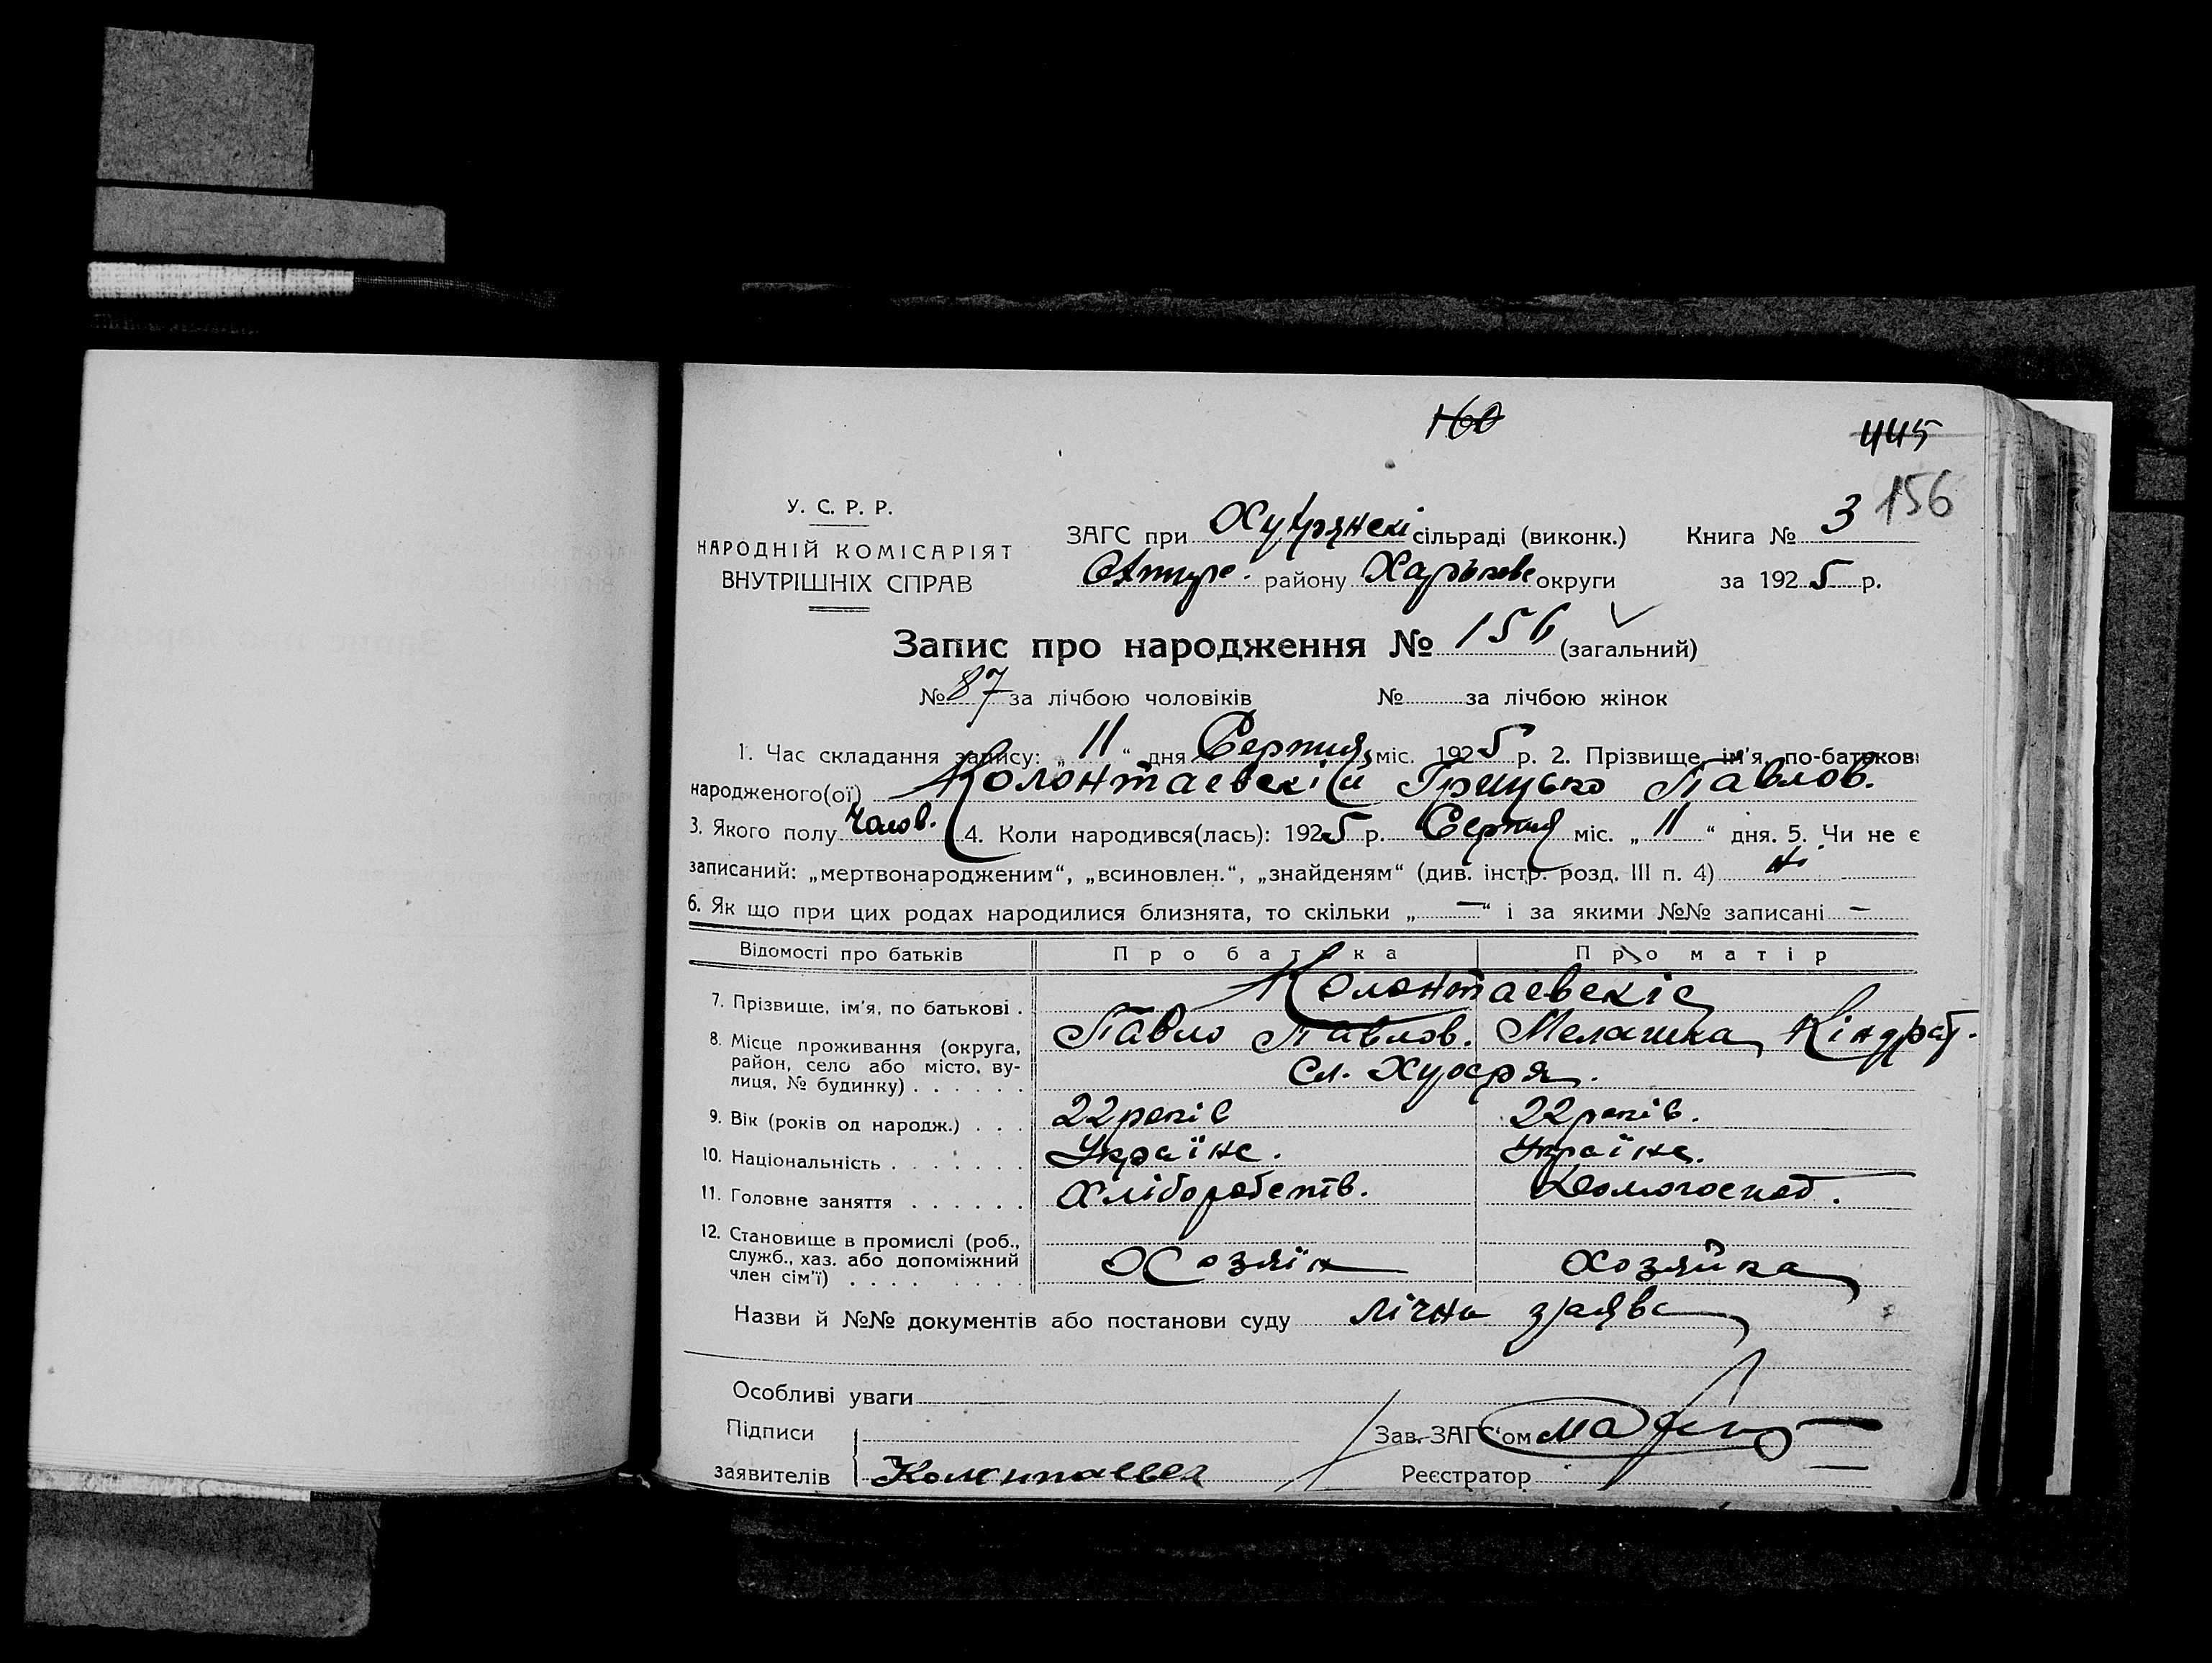 160
445
156
У. С. Р. Р.
НАРОДНІЙ КОМІСАРІЯТ
ВНУТРІШНІХ СПРАВ
ЗАГС при сільраді (виконк.) Книга № 3
району округи за 1925 р.
Запис про народження № 156 (загальний)
№ 87 за лічбою чоловіків № за лічбою жінок
1. Час складання запису: „11“ дня Серпня міс. 1925 р. 2. Прізвище, ім'я, по-батькові
народженого(ої) Колонтаевскій Грицько Павлов.
3. Якого полу Чолов. 4. Коли народився(лась): 1925 р. Серпня міс. „11“ дня. 5. Чи не є
записаний: „мертвонародженим“, „всиновлен.“, „знайденям“ (див. інстр. розд. III п. 4)
6. Як що при цих родах народилися близнята, то скільки „—“ і за якими №№ записані —
Відомості про батьків Про батька Про матір
7. Прізвище, ім'я, по батькові . Колонтаевскіе
Павло Павлов. Мелашка Кіндрат.
8. Місце проживання (округа,
район, село або місто, ву-
лиця, № будинку) . . . . . . Сл. Хухря.
9. Вік (років од народж.) . . . 22 років 22 років.
10. Національність . . . . . . . Україне. Україне.
11. Головне заняття . . . . . . Хліборобств. Домогоспод.
12. Становище в промислі (роб.,
служб., хаз. або допоміжний
член сім'ї) . . . . . . . . . Хозяїн Хозяйка
Назви й №№ документів або постанови суду лічна заява
Особливі уваги
Підписи Зав. ЗАГС'ом
заявителів Реєстратор